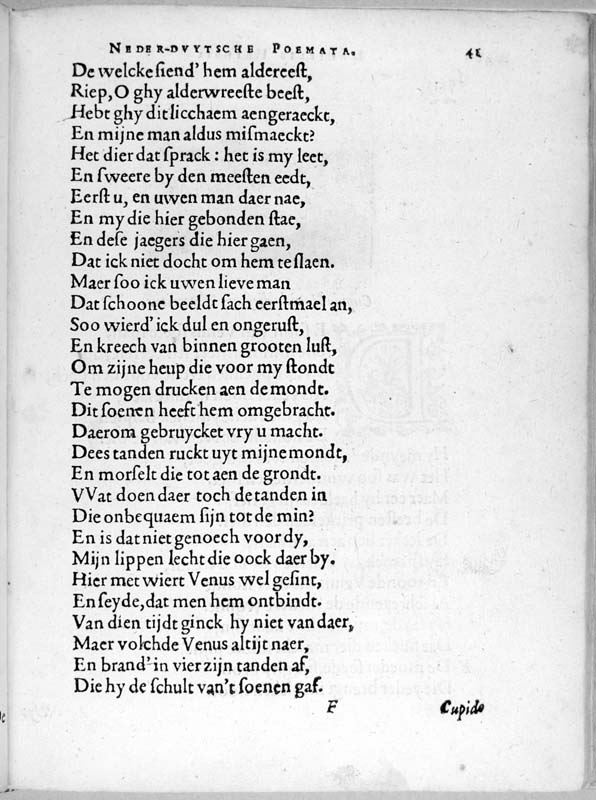 NEDER-DVYTSCHE POEMATA. 41
De welcke ſiend' hem aldereeſt,
Riep, O ghy alderwreeſte beeſt,
Hebt ghy dit licchaem aengeraeckt,
En mijne man aldus miſmaeckt?
Het dier dat ſprack : het is my leet,
En ſweere by den meeſten eedt,
Eerſt u, en uwen man daer nae,
En my die hier gebonden ſtae,
En deſe jaegers die hier gaen,
Dat ick niet docht om hem te ſlaen.
Maer ſoo ick uwen lieve man
Dat ſchoone beeldt ſach eerſtmael an,
Soo wierd' ick dul en ongeruſt,
En kreech van binnen grooten luſt,
Om zijne heup die voor my ſtondt
Te mogen drucken aen de mondt.
Dit ſoenen heeft hem omgebracht.
Daerom gebruycket vry u macht.
Dees tanden ruckt uyt mijne mondt,
En morſelt die tot aen de grondt.
VVat doen daer toch de tanden in
Die onbequaem ſijn tot de min?
En is dat niet genoech voor dy,
Mijn lippen lecht die oock daer by.
Hier met wiert Venus wel geſint,
En ſeyde, dat men hem ontbindt.
Van dien tijdt ginck hy niet van daer,
Maer volchde Venus altijt naer,
En brand' in vier zijn tanden af,
Die hy de ſchult van't ſoenen gaf.
F Cupido